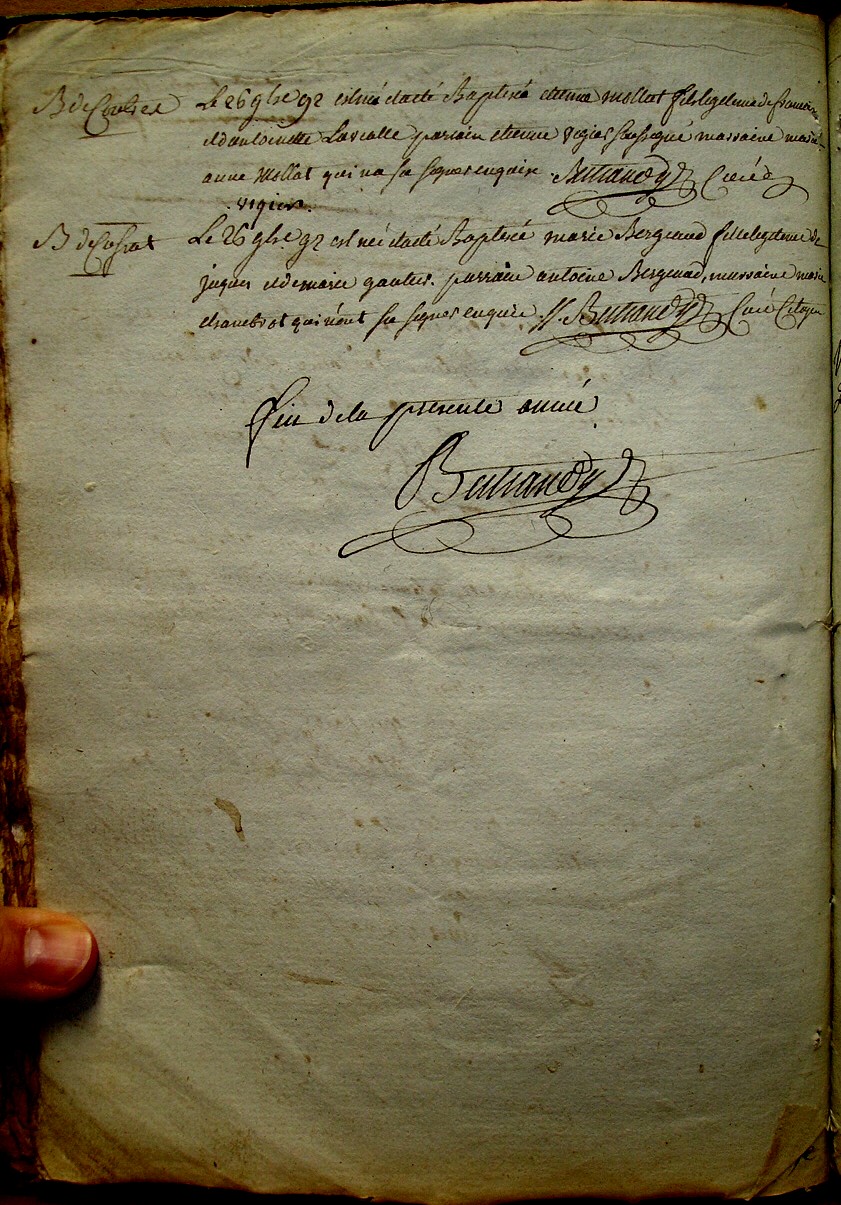 B de Le 26 9bre 92 est né et a été Baptisé etienne mollat fils legitime de
et d antoinette Lascalle parrain etienne vigier soussigné marraine marie
anne Mollat qui n'a su signer enquise. Bertrandy Curé
vigier.
B de Le 26 9bre 92 est née et a été Baptisé marie Bergeaud fille legitime de
jaques et de marie gautier. parrain antoine Bergeaud, marraine marie
qui n'ont su signer enquis. Bertrandy Curé Citoyen
fin de la presente année
Bertrandy